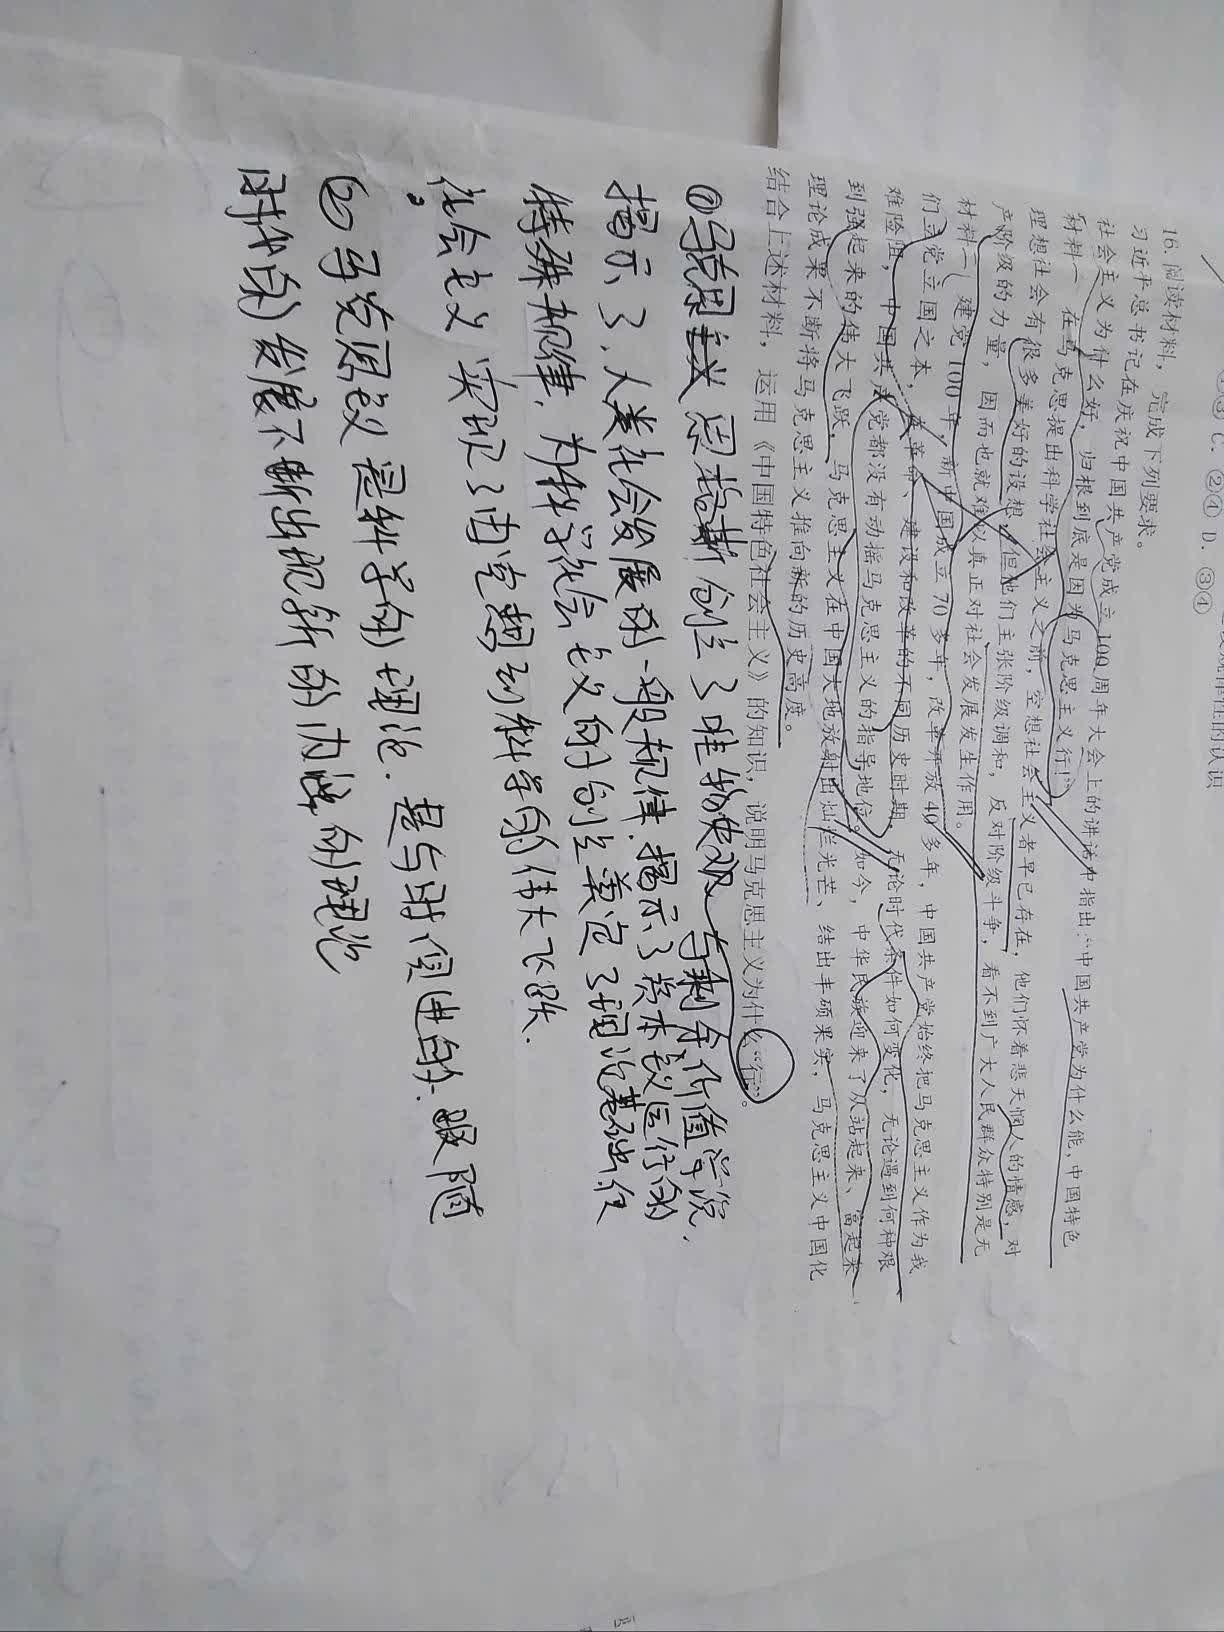 ②④ D. ③④
性的认识
16.阅读材料，完成下列要求。
习近平总书记在庆祝中国共产党成立100周年大会上的讲话中指出：“中国共产党为什么能，中国特色
社会主义为什么好，归根到底是因为马克思主义行！”
材料一 在马克思提出科学社会主义之前，空想社会主义者早已存在，他们怀着悲天悯人的情感，对
理想社会有很多美好的设想，但他们主张阶级调和，反对阶级斗争，看不到广大人民群众特别是无
产阶级的力量，因而也就难以真正对社会发展发生作用。
材料二 建党100年，新中国成立70多年，改革开放40多年，中国共产党始终把马克思主义作为我
们立党立国之本，在革命、建设和改革的不同历史时期，无论时代条件如何变化，无论遇到何种艰
难险阻，中国共产党都没有动摇马克思主义的指导地位。如今，中华民族迎来了从站起来、富起来
到强起来的伟大飞跃，马克思主义在中国大地放射出灿烂光芒、结出丰硕果实，马克思主义中国化
理论成果不断将马克思主义推向新的历史高度。
结合上述材料，运用《中国特色社会主义》的知识，说明马克思主义为什么“行”。
①马克思主义 创立了唯物史观与剩余价值学说，
揭示了，人类社会发展的一般规律，揭示了资本主义运行的
特殊规律，为科学社会主义的创立奠定了理论基础，使
社会主义实现了由空想到科学的伟大飞跃.
②马克思主义是科学的理论.是与时俱进的.跟随
时代的发展不断出现新的内涵的理论